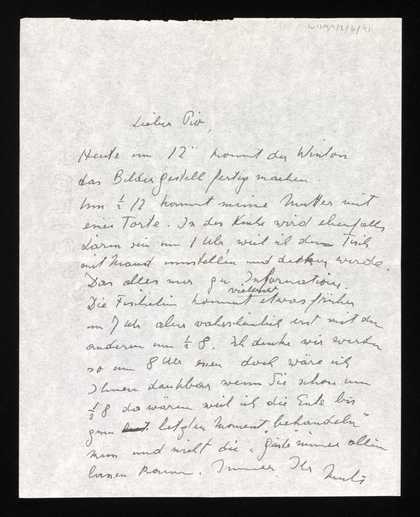 Lieber Pio,
Heute um 12 kommt der Winton
das Bildergestell fertig machen
Um ½ 12 kommt meine Mutter mit
einer Torte. In der Küche wird ebenfalls
Lärm sein um 1 Uhr weil ich den Tisch
mit Maud umstellen und decken werde.
Das alles nur zur Information.
Die kommt vielleicht etwas früher
um 7 Uhr aber wahrscheinlich erst mit den
anderen um ½ 8. Ich denke wir werden
so um 8 Uhr essen doch wäre ich
Ihnen dankbar wenn Sie schon um
½ 8 da wären weil ich die Ente bis
zum letzten Moment „behandeln“
muss und nicht die Gäste immer allein
lassen kann. Immer Ihr